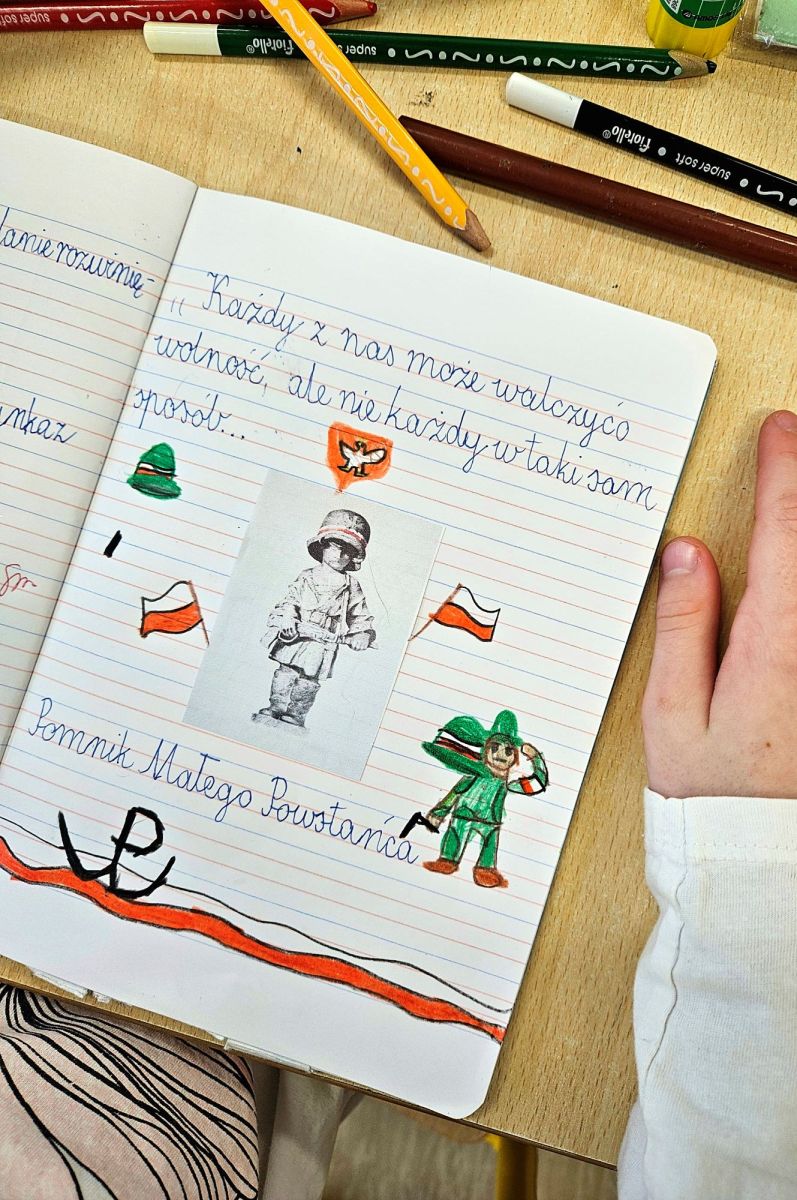 super soft
fiorello®
super soft
fiorello® super soft
„Każdy z nas może walczyćo
wolność, ale nie każdy w taki sam
sposób...
Pomnik Małego Powstańca